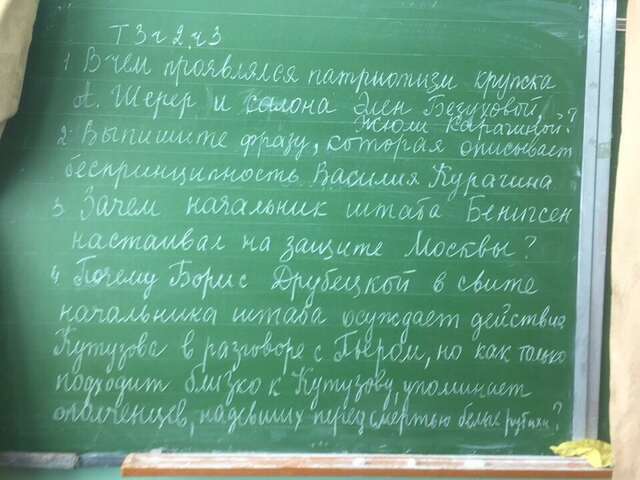 Т 3 ч 2, ч 3
1 В чем проявлялся патриотизм кружка
А. Шерер и салона Элен Безуховой,
Жюли Карагиной?
2. Выпишите фразу, которая описывает
беспринципность Василия Курагина
3 Зачем начальник штаба Бенигсен
настаивал на защите Москвы?
4. Почему Борис Друбецкой в свите
начальника штаба осуждает действия
Кутузова в разговоре с Пьером, но как только
подходит близко к Кутузову, упоминает
ополченцев, надевших перед смертью белые рубахи?